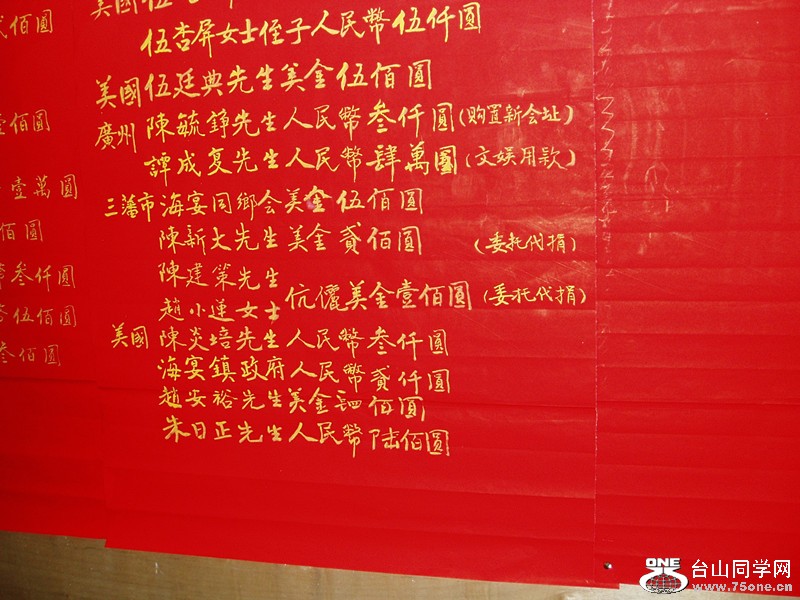 美國伍
伍杏屏女士侄子人民幣伍仟圓
美國伍廷典先生美金伍佰圓
廣州 陳毓錚先生人民幣叁仟圓(购置新会址)
譚成复先生人民幣肆萬圓(文娱用款)
三藩市海宴同鄉会美金伍佰圓
陳新大先生美金貳佰圓 (委托代捐)
陳建策先生
趙小蓮女士 伉儷美金壹佰圓(委托代捐)
美國 陳炎培先生人民幣叁仟圓
海宴鎮政府人民幣貳仟圓
趙安裕先生美金 佰圓
朱日正先生人民幣陆佰圓
佰圓
壹佰圓
壹萬圓
佰圓
幣叁仟圓
伍佰圓
叁佰圓
ONE 台山同学网
www.75one.cn